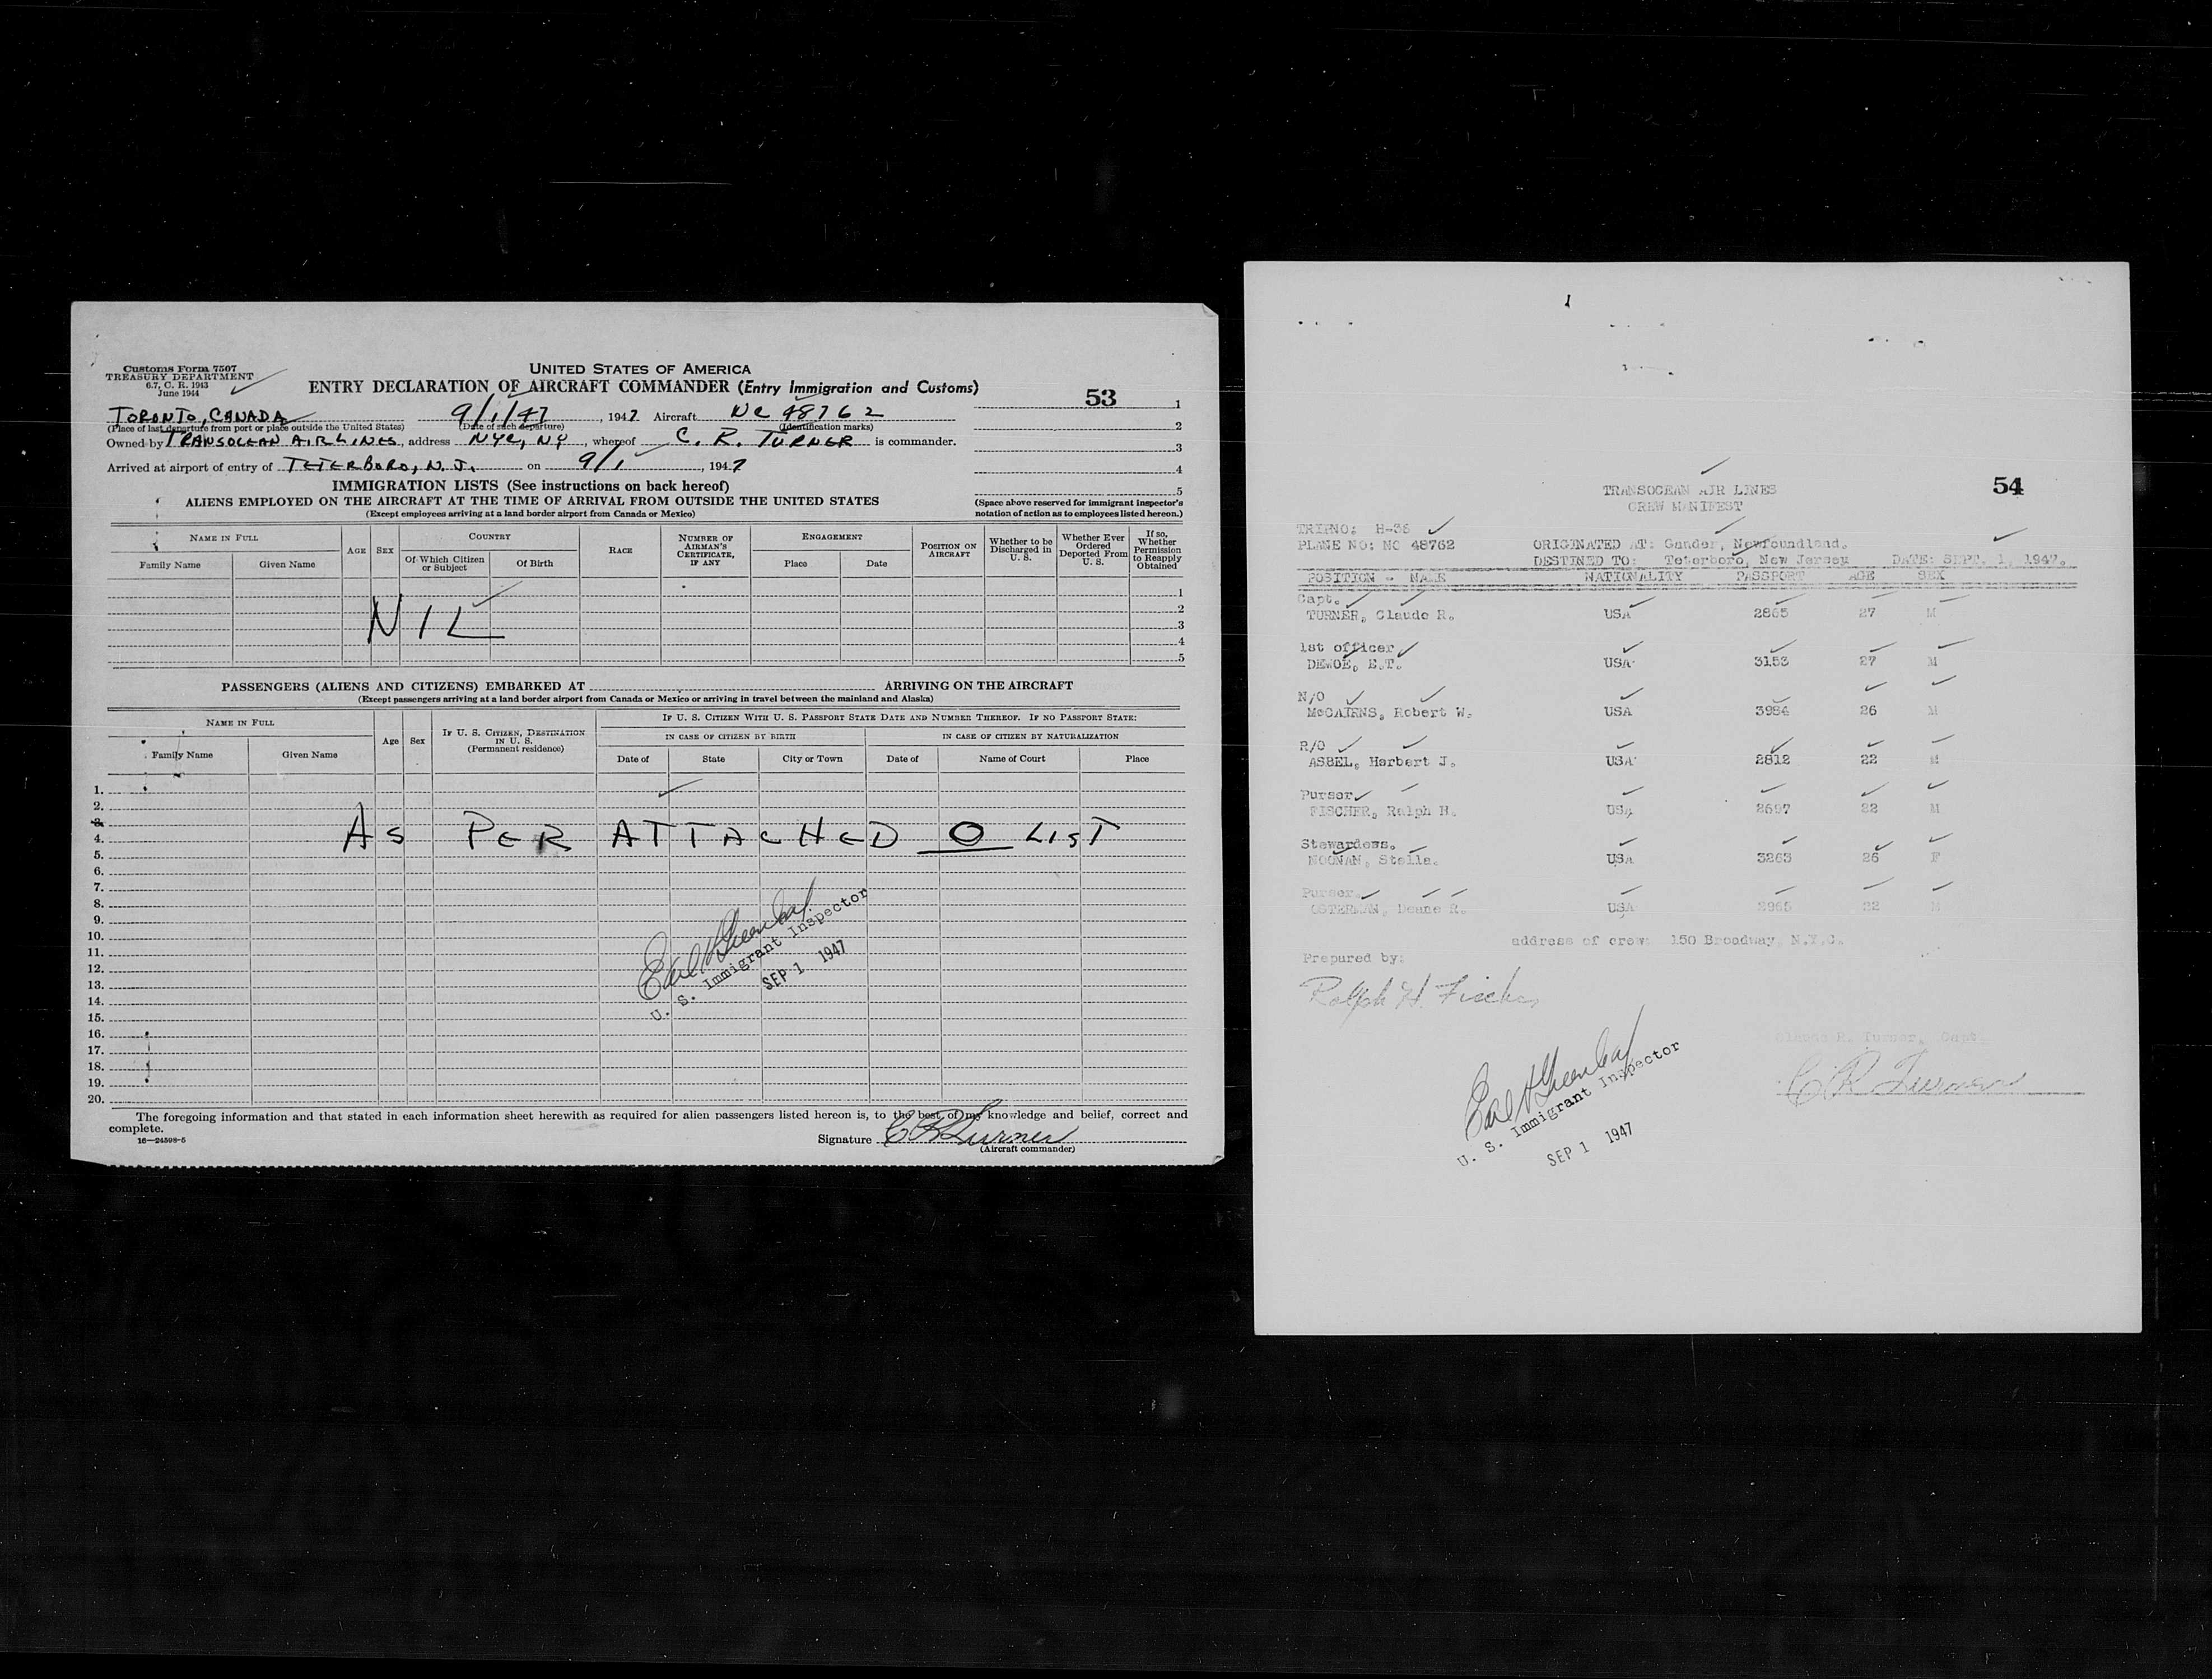 Customs Form 7507
TREASURY DEPARTMENT
6.7, C. R. 1943
June 1944
UNITED STATES OF AMERICA
ENTRY DECLARATION OF AIRCRAFT COMMANDER (Entry Immigration and Customs)
53
TORONTO, CANADA 9/1/47, 1947 Aircraft NC 48762
(Place of last departure from port or place outside the United States) (Date of such departure) (Identification marks)
Owned by TRANSOCEAN AIRLINES, address NYC, NY, whereof C. R. TURNER is commander.
Arrived at airport of entry of TETERBORO, N. J. on 9/1, 1947
1
2
3
4
5
(Space above reserved for immigrant inspector's
notation of action as to employees listed hereon.)
IMMIGRATION LISTS (See instructions on back hereof)
ALIENS EMPLOYED ON THE AIRCRAFT AT THE TIME OF ARRIVAL FROM OUTSIDE THE UNITED STATES
(Except employees arriving at a land border airport from Canada or Mexico)
NAME IN FULL
Family Name Given Name
AGE SEX
COUNTRY
Of Which Citizen or Subject Of Birth
RACE
NUMBER OF AIRMAN'S CERTIFICATE, IF ANY
ENGAGEMENT
Place Date
POSITION ON AIRCRAFT
Whether to be Discharged in U. S.
Whether Ever Ordered Deported From U. S.
If so, Whether Permission to Reapply Obtained
1
2
3
4
5
NIL
PASSENGERS (ALIENS AND CITIZENS) EMBARKED AT ARRIVING ON THE AIRCRAFT
(Except passengers arriving at a land border airport from Canada or Mexico or arriving in travel between the mainland and Alaska)
NAME IN FULL
Family Name Given Name
Age Sex
IF U. S. CITIZEN, DESTINATION IN U. S.
(Permanent residence)
IF U. S. CITIZEN WITH U. S. PASSPORT STATE DATE AND NUMBER THEREOF. IF NO PASSPORT STATE:
IN CASE OF CITIZEN BY BIRTH IN CASE OF CITIZEN BY NATURALIZATION
Date of State City or Town Date of Name of Court Place
1.
2.
3.
4.
AS PER ATTACHED O LIST
5.
6.
7.
8.
9.
10.
11.
12.
13.
14.
15.
16.
17.
18.
19.
20.
U. S. Immigrant Inspector
SEP 1 1947
The foregoing information and that stated in each information sheet herewith as required for alien passengers listed hereon is, to the best of my knowledge and belief, correct and
complete.
16—24598-5
Signature C R Turner
(Aircraft commander)
54
TRANSOCEAN AIR LINES
CREW MANIFEST
TRIPNO: H-36
PLANE NO: NC 48762 ORIGINATED AT: Gander, Newfoundland.
DESTINED TO: Teterboro, New Jersey DATE: SEPT. 1, 1947.
POSITION - NAME NATIONALITY PASSPORT AGE SEX
Capt.
TURNER, Claude R. USA 2865 27 M
1st officer
DEWOE, E.T. USA 3153 27 M
N/O
McCAIRNS, Robert W. USA 3984 26 M
R/O
ASBEL, Herbert J. USA 2812 22 M
Purser
FISCHER, Ralph H. USA 2697 22 M
Stewardess.
NOONAN, Stella. USA 3263 26 F
Purser
OSTERMAN, Deane R. USA 2965 22 M
address of crew: 150 Broadway, N.Y.C.
Prepared by:
Ralph H. Fischer
Claude R. Turner, Capt.
C R Turner
U. S. Immigrant Inspector
SEP 1 1947